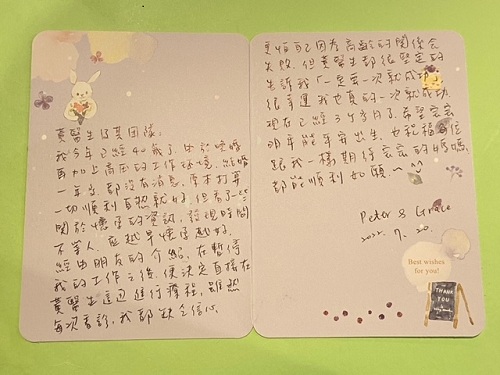 黃醫生及其團隊:
我今年已經40歲了,由於晚婚
再加上高困的工作環境,結婚
一年多,都沒有消息,原本打算
一切順利自然就好,但看了一些
關於懷孕的資訊,發現時間
不等人,應越早懷孕越好。
經由朋友的介紹,在暫停
我的工作之後,便決定直接在
黃醫生這邊進行療程,雖然
每次看診,我都缺乏信心,
更怕自己因為高齡的關係會
失敗,但黃醫生都很堅定的
告訴我「一定要一次就成功」
很幸運我也真的一次就成功
現在已經3個多月了,希望寶寶
明年能平安出生,也祝福每位
跟我一樣期待寶寶的媽媽,
都能順利如願~^^
Peter & Grace
2022. 7. 20.
Best wishes
for you!
THANK
YOU